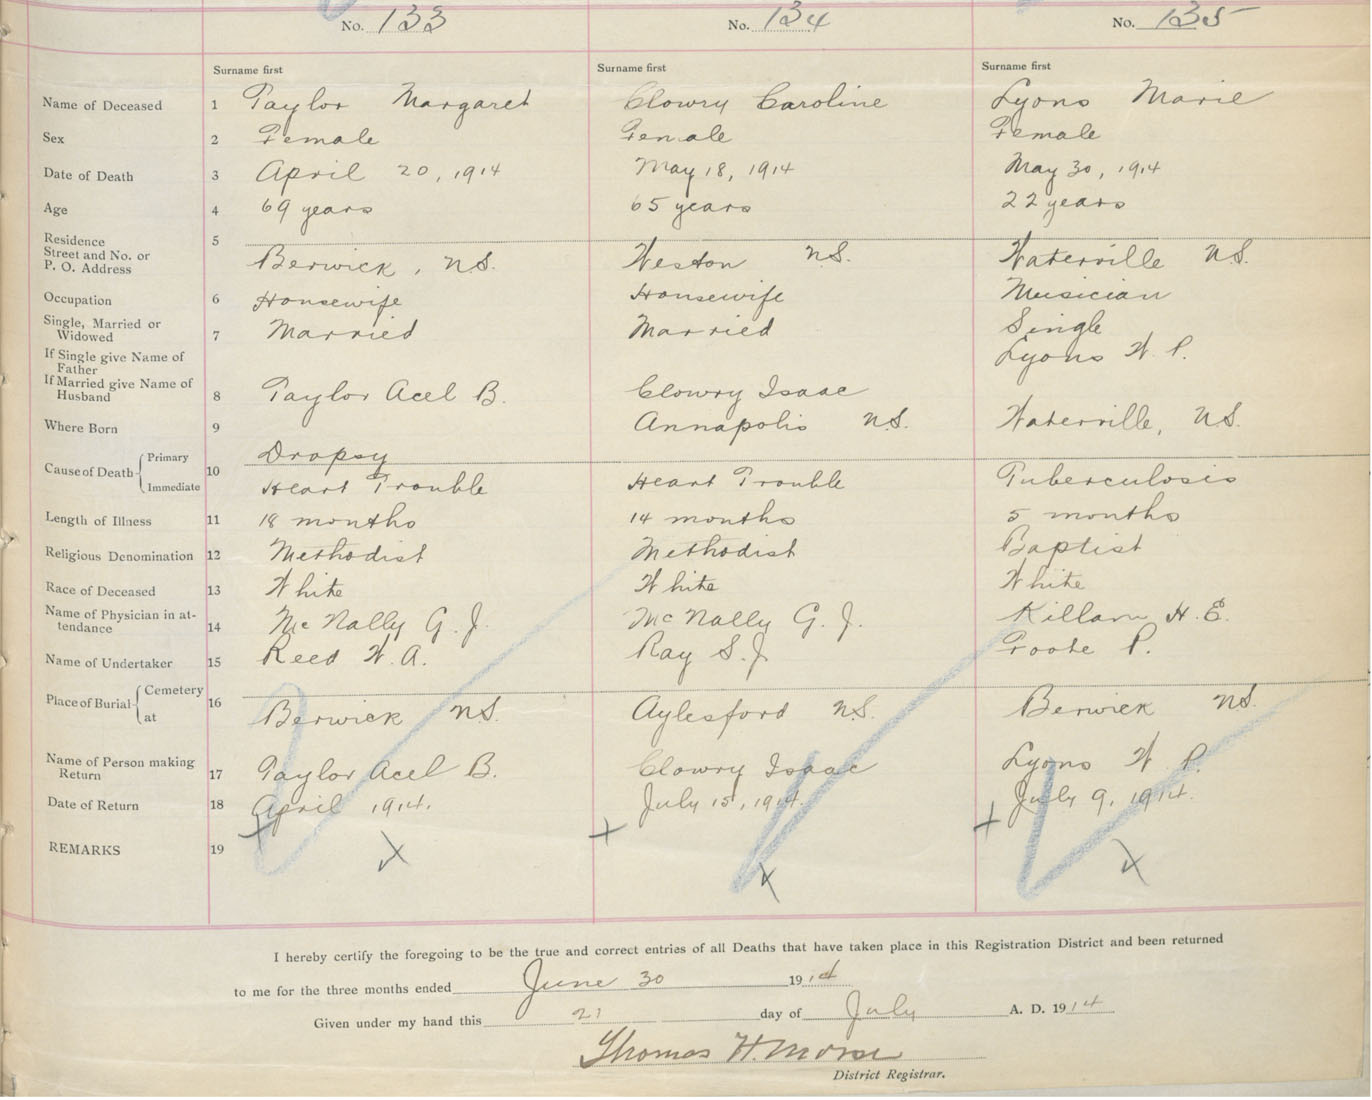 No. 133 No. 134 No. 135
Surname first Surname first Surname first
Name of Deceased 1 Taylor Margaret Clowry Caroline Lyons Marie
Sex 2 Female Female Female
Date of Death 3 April 20, 1914 May 18, 1914 May 30, 1914
Age 4 69 years 65 years 22 years
Residence 5
Street and No. or
P. O. Address Berwick, N.S. Weston N.S. Waterville N.S.
Occupation 6 Housewife Housewife Musician
Single, Married or
Widowed 7 Married Married Single
If Single give Name of
Father Lyons W. P.
If Married give Name of
Husband 8 Taylor Acel B. Clowry Isaac
Where Born 9 Annapolis N.S. Waterville, N.S.
Cause of Death Primary 10 Dropsy
Immediate Heart Trouble Heart Trouble Tuberculosis
Length of Illness 11 18 months 14 months 5 months
Religious Denomination 12 Methodist Methodist Baptist
Race of Deceased 13 White White White
Name of Physician in at-
tendance 14 McNally G. J. McNally G. J. Killam H. E.
Name of Undertaker 15 Reed W. A. Ray S. J. Foote P.
Place of Burial Cemetery 16
at Berwick N.S. Aylesford N.S. Berwick N.S.
Name of Person making
Return 17 Taylor Acel B. Clowry Isaac Lyons W. P.
Date of Return 18 April 1914. July 15, 1914. July 9, 1914.
REMARKS 19
I hereby certify the foregoing to be the true and correct entries of all Deaths that have taken place in this Registration District and been returned
to me for the three months ended June 30 1914
Given under my hand this 21 day of July A. D. 1914
Thomas H. Morse
District Registrar.